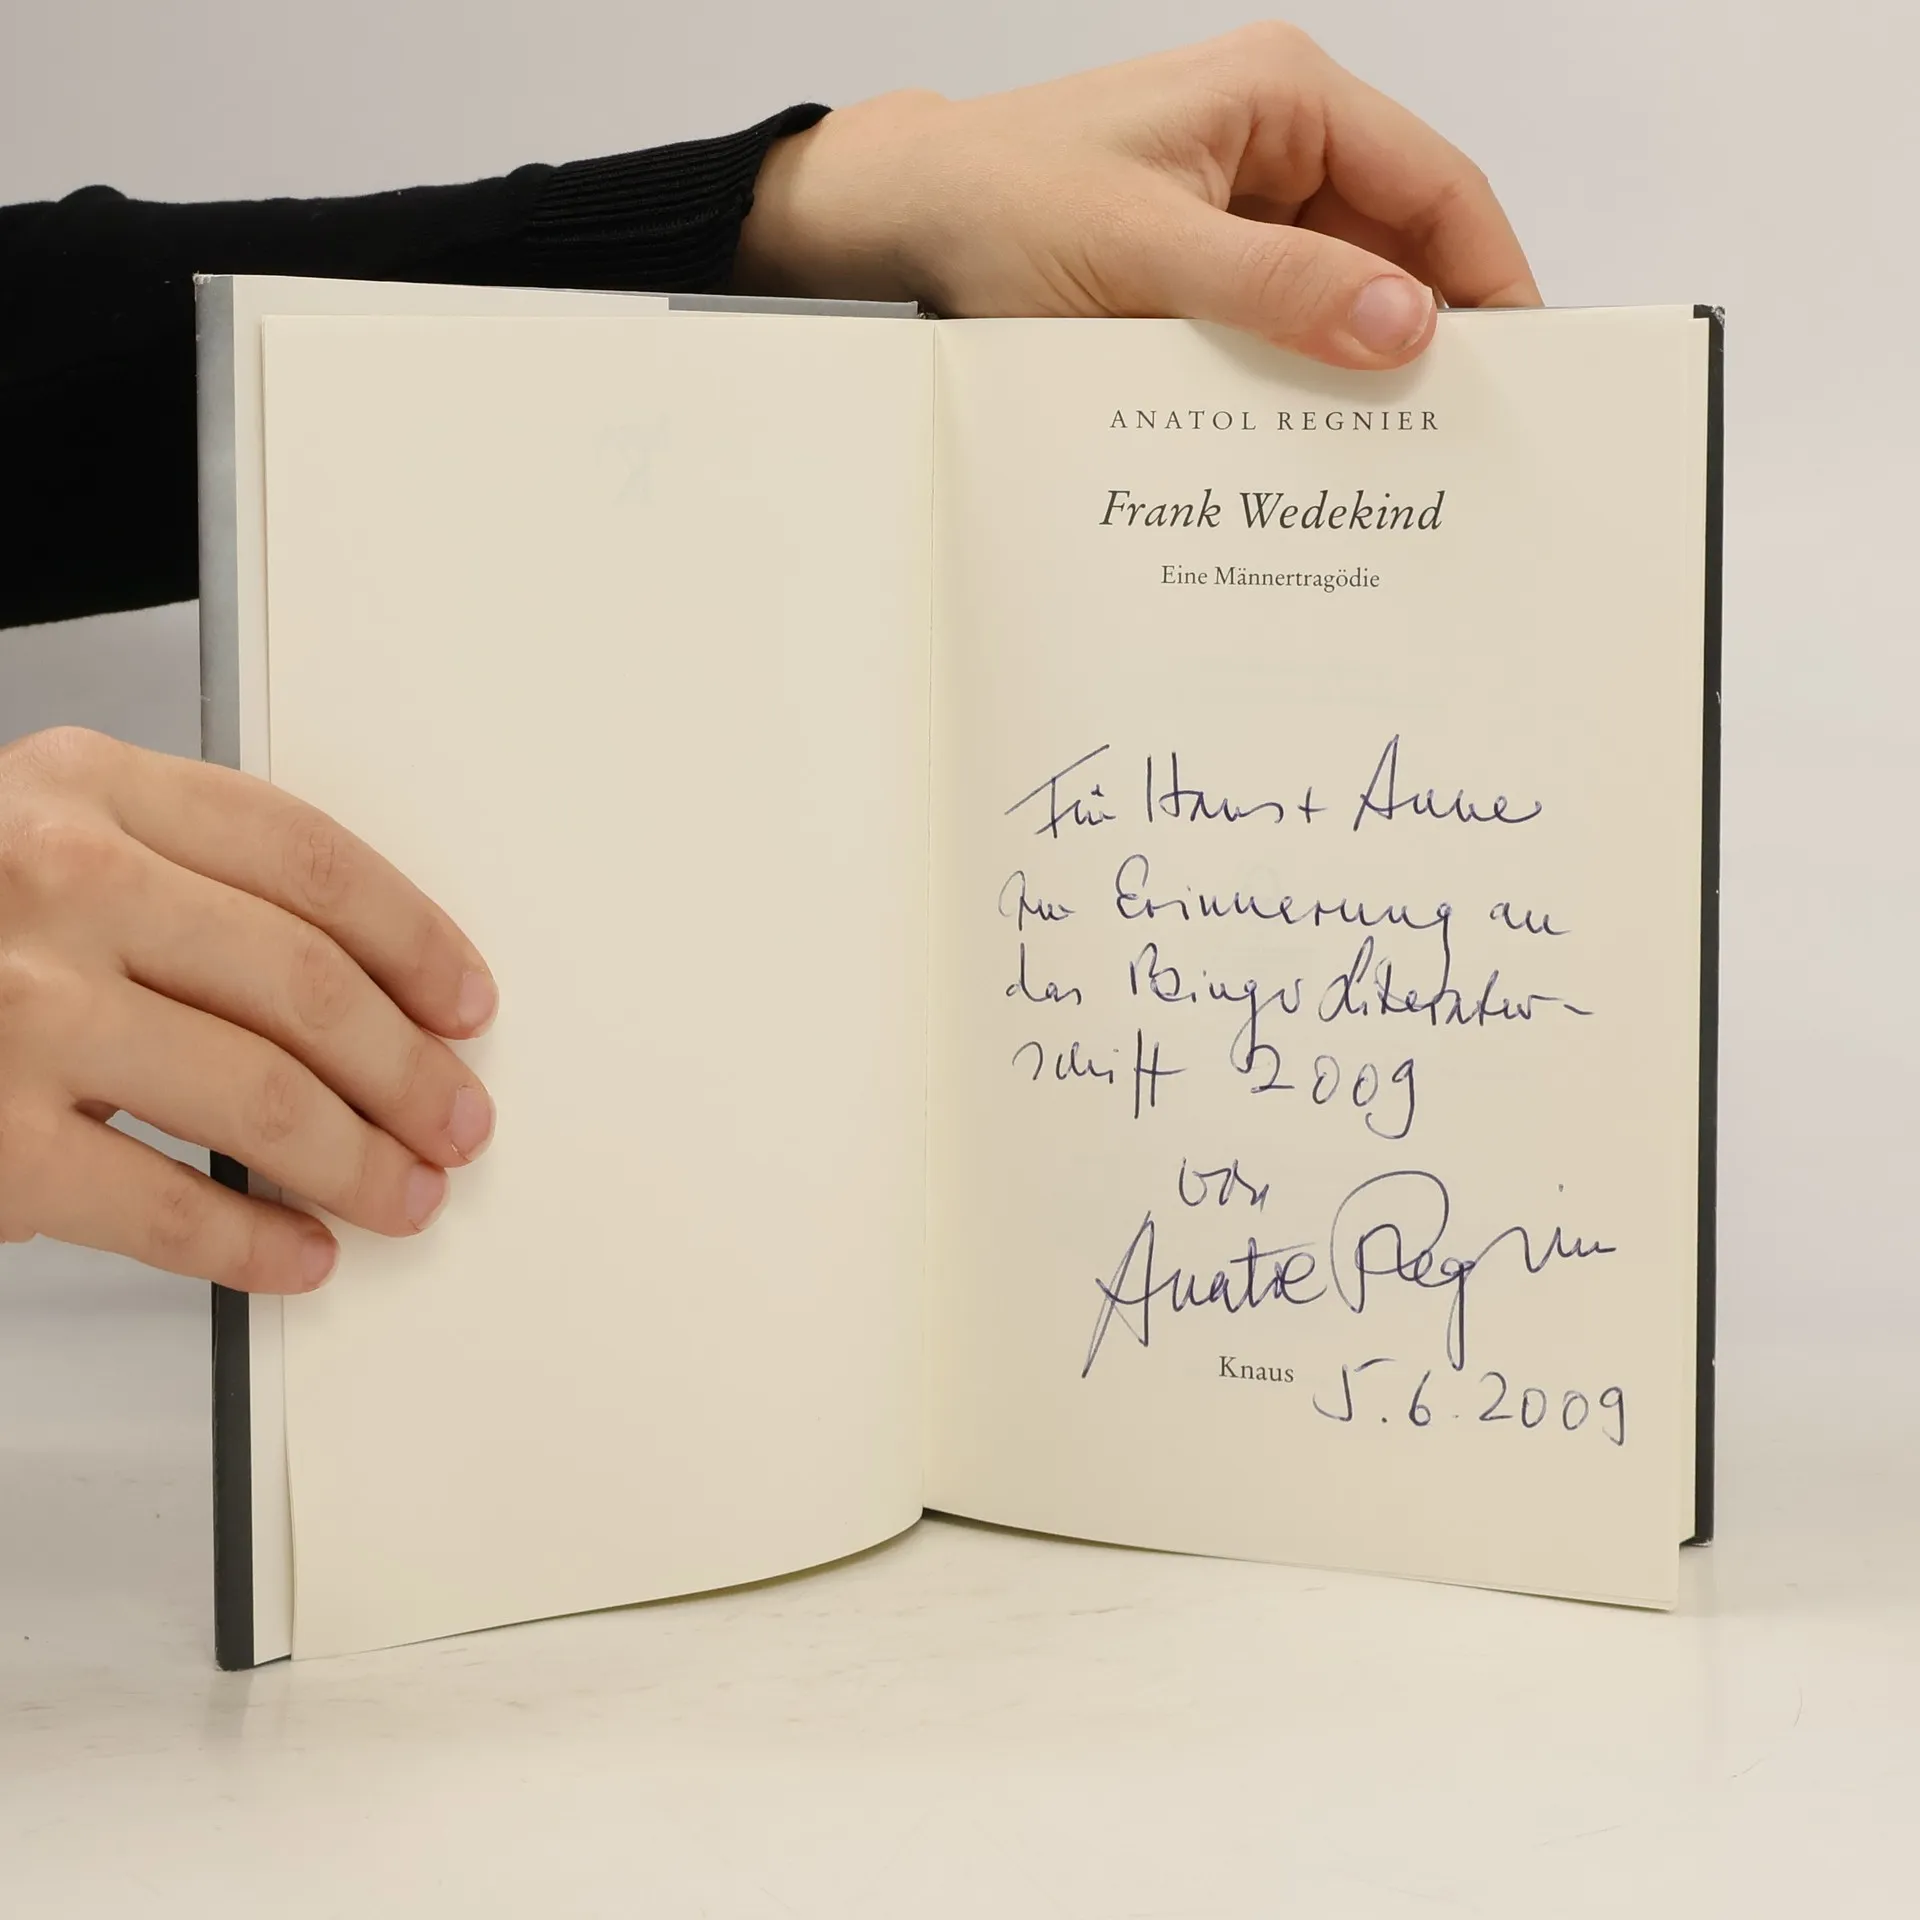 ANATOL REGNIER
Frank Wedekind
Eine Männertragödie
Für Hans + Anne
zur Erinnerung an
das Literatur-
schiff 2009
von
Anatol Regnier
Knaus
5.6.2009